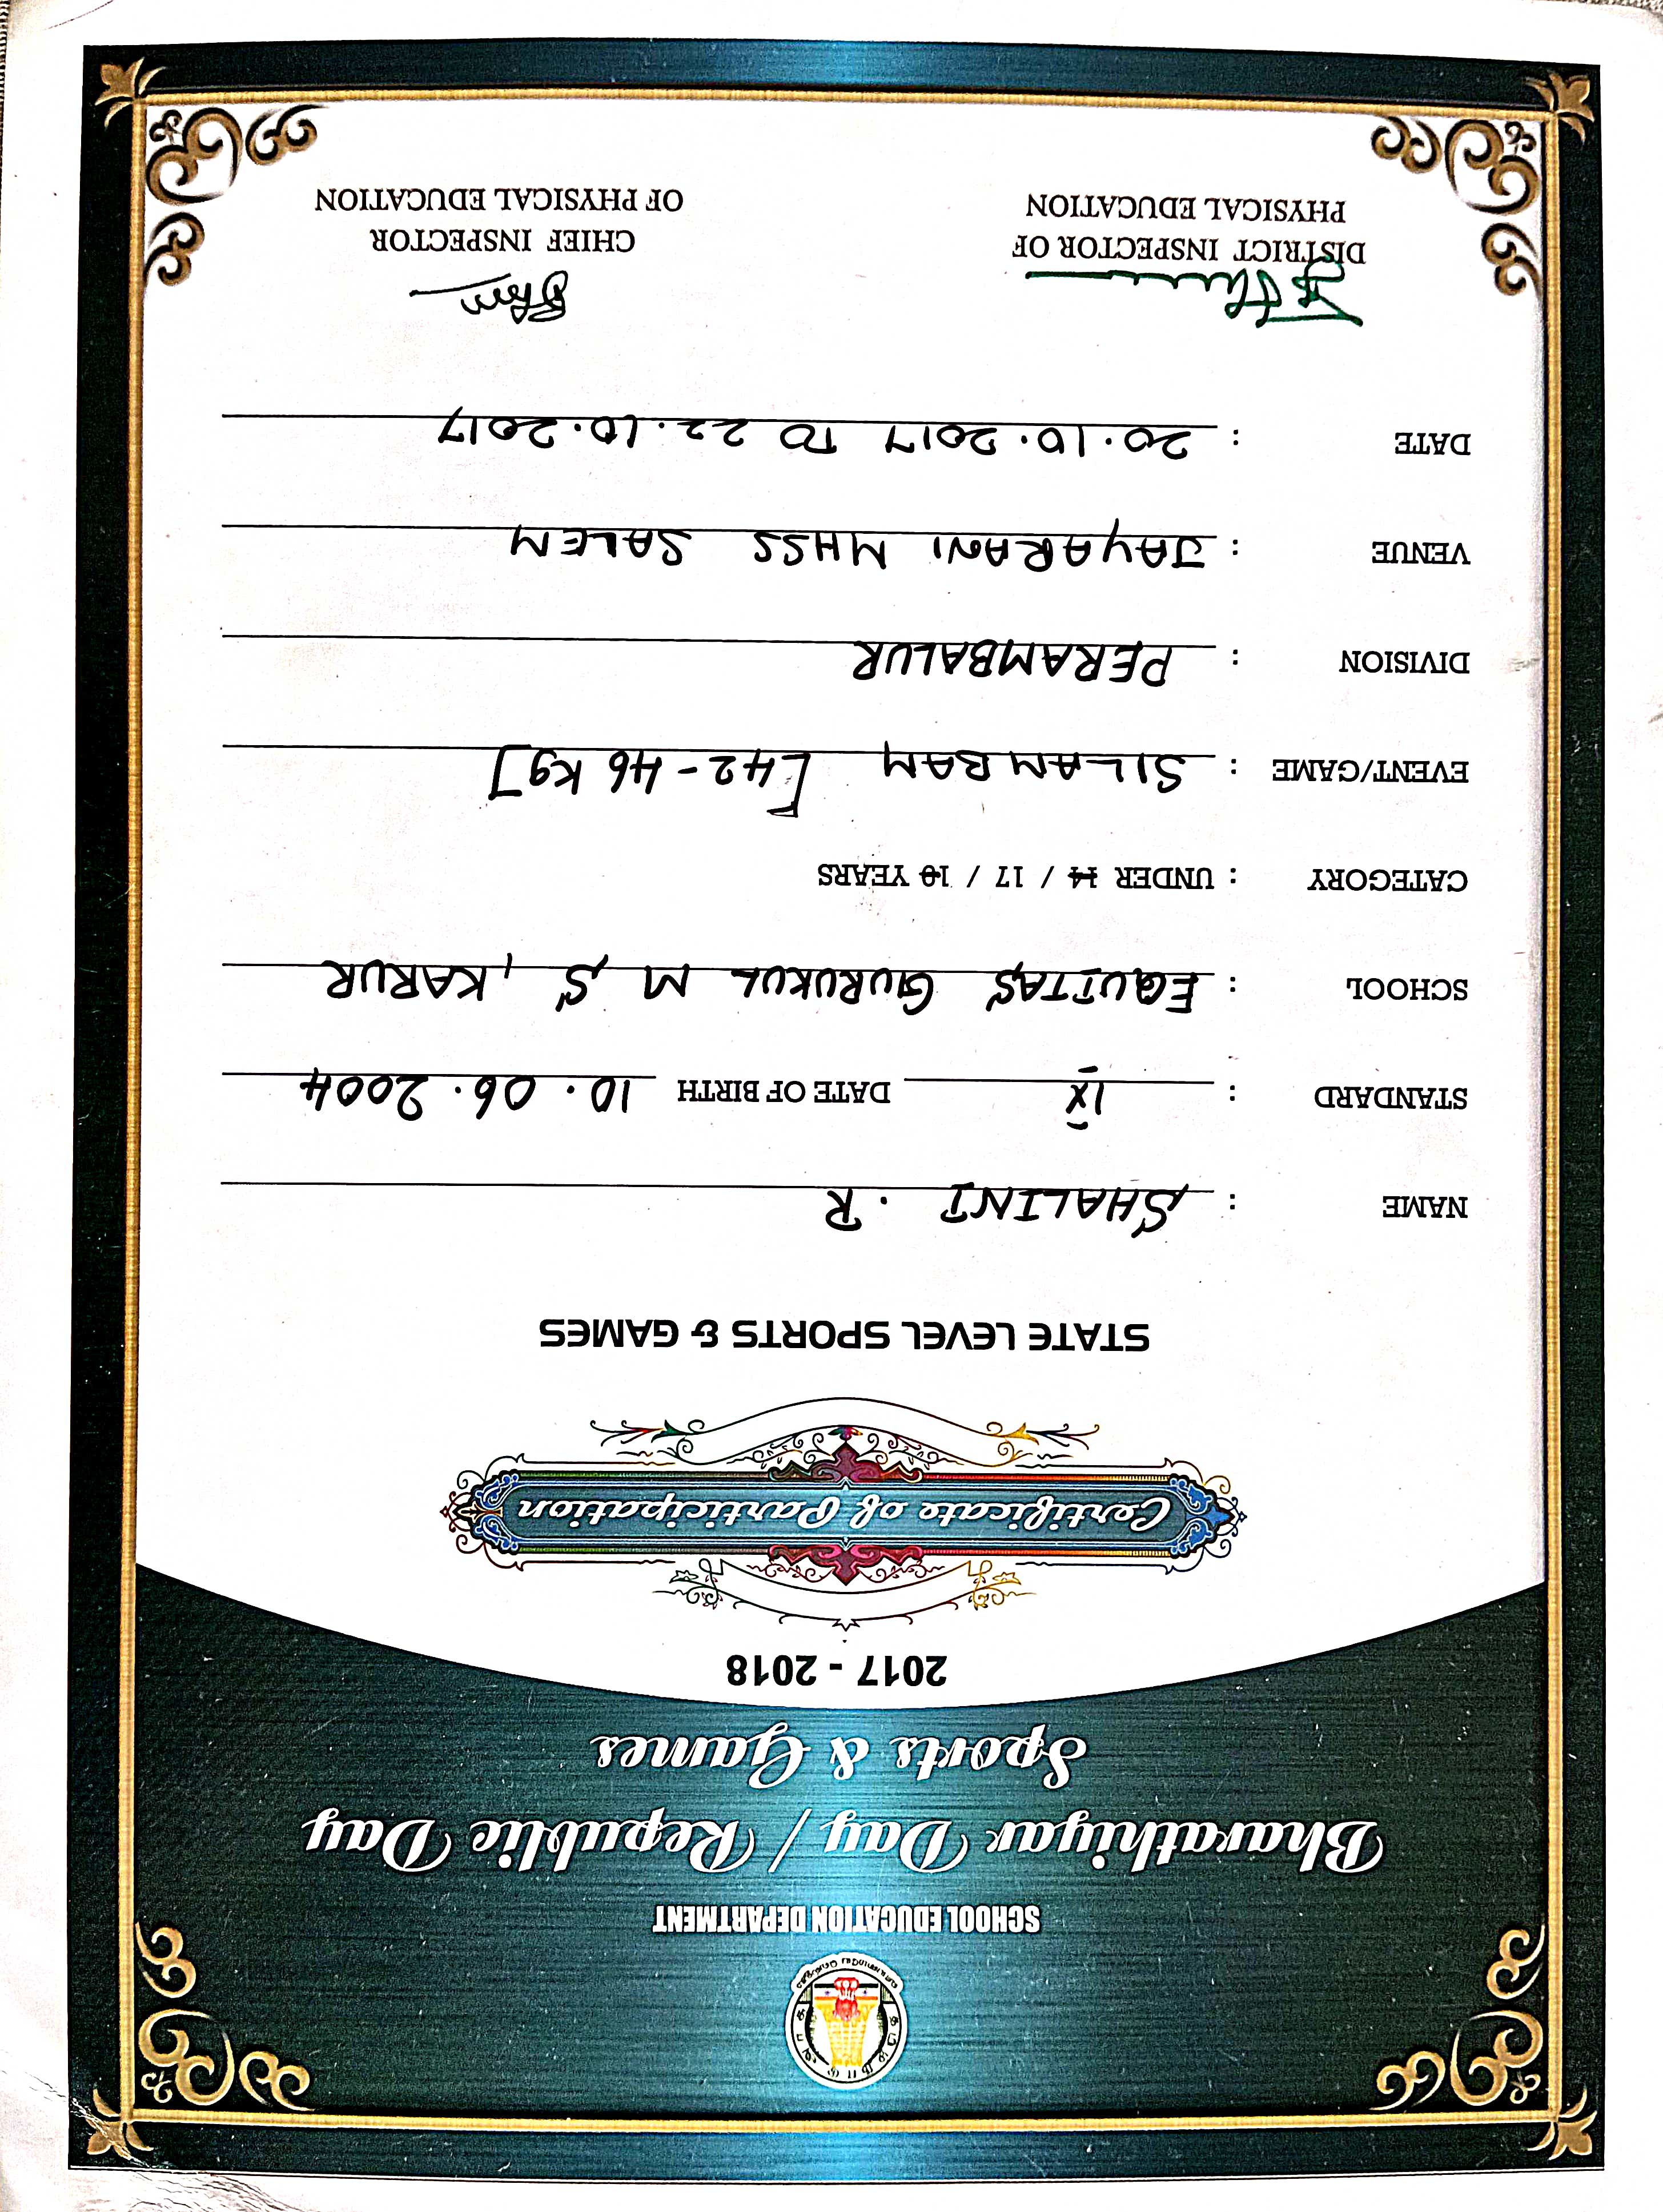 SCHOOL EDUCATION DEPARTMENT
Bharathiyar Day / Republic Day
Sports & Games
2017 - 2018
Certificate of Participation
STATE LEVEL SPORTS & GAMES
NAME : SHALINI . R
STANDARD : IX DATE OF BIRTH 10.06.2004
SCHOOL : EQUITAS GURUKUL M S, KARUR
CATEGORY : UNDER 14 / 17 / 19 YEARS
EVENT/GAME : SILAMBAM [42-46 Kg]
DIVISION : PERAMBALUR
VENUE : JAYARANI MHSS SALEM
DATE : 20.10.2017 TO 22.10.2017
DISTRICT INSPECTOR OF CHIEF INSPECTOR
PHYSICAL EDUCATION OF PHYSICAL EDUCATION